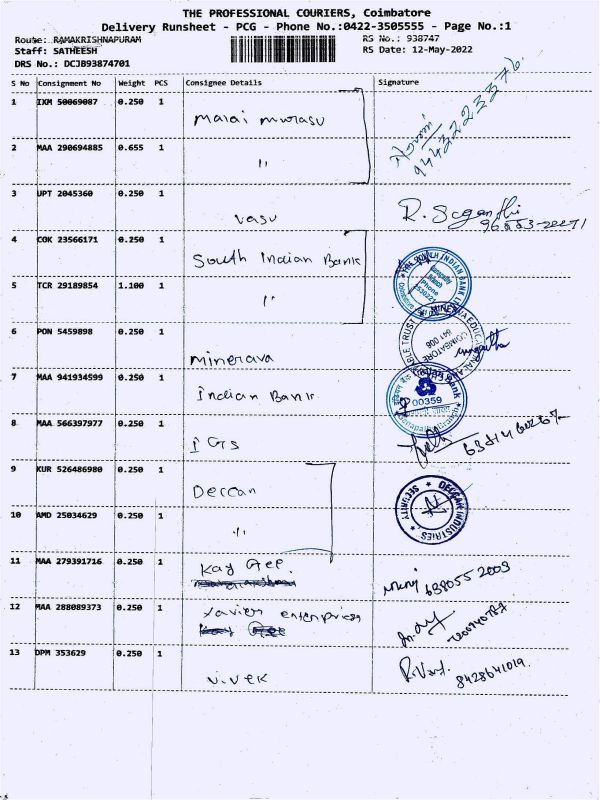 THE PROFESSIONAL COURIERS, Coimbatore
Delivery Runsheet - PCG - Phone No.:0422-3505555 - Page No.:1
Route: RAMAKRISHNAPURAM
RS No.: 938747
Staff: SATHEESH
RS Date: 12-May-2022
DRS No.: DCJB93874701
S No Consignment No Weight PCS Consignee Details Signature
1 IXM 50069087 0.250 1 Malai murasu
9443223376
2 MAA 290694885 0.655 1 "
3 UPT 2045360 0.250 1 vasu
4 COK 23566171 0.250 1 South Indian Bank
5 TCR 29189854 1.100 1 "
THE SOUTH INDIAN BANK
Phone
6 PON 5459898 0.250 1 Minerava
COIMBATORE
641 008
7 MAA 941934599 0.250 1 Indian Bank
00359
8 MAA 566397977 0.250 1 IGS
9 KUR 526486980 0.250 1 Deccan
DECCAN INDUSTRIES
SECURITY
10 AMD 25034629 0.250 1 "
11 MAA 279391716 0.250 1 Kay Gee
638055 2003
12 MAA 288089373 0.250 1 Xavier enterprises
13 DPM 353629 0.250 1 vivek
8428641019.